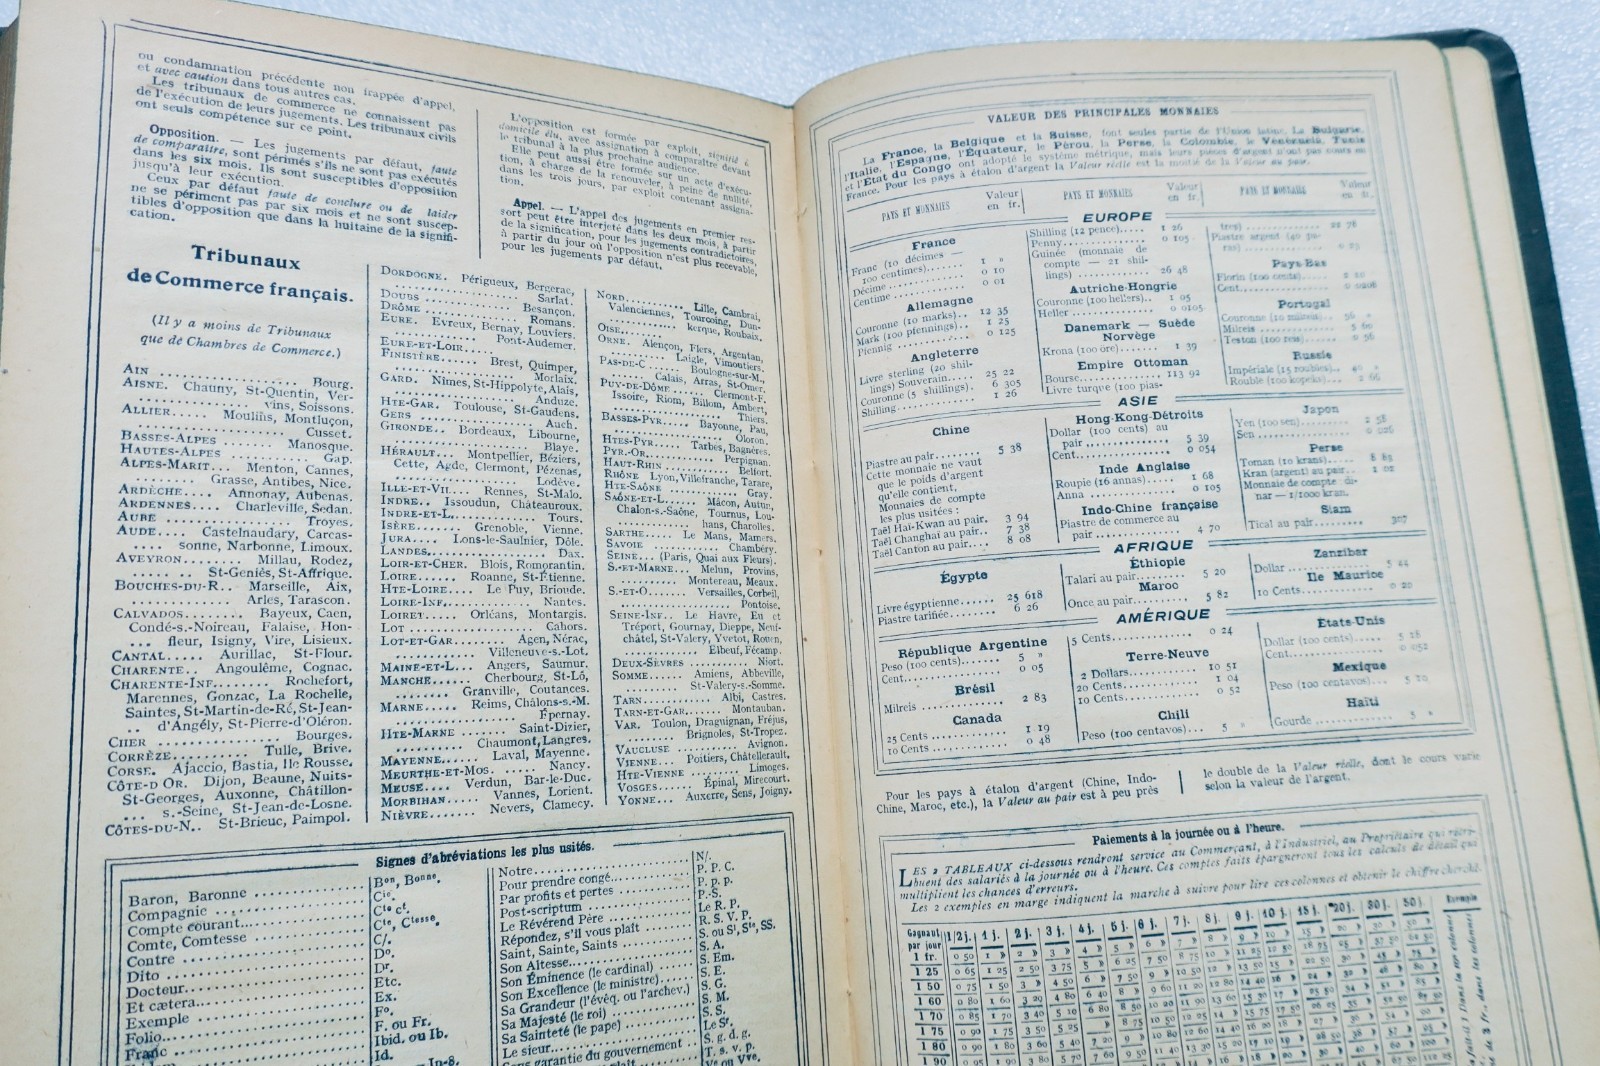 ou condamnation précédente non frappée d'appel,
et avec caution dans tous autres cas.
Les tribunaux de commerce ne connaissent pas
de l'exécution de leurs jugements. Les tribunaux civils
ont seuls compétence sur ce point.
Opposition. — Les jugements par défaut, faute
de comparaître, sont périmés s'ils ne sont pas exécutés
dans les six mois. Ils sont susceptibles d'opposition
jusqu'à leur exécution.
Ceux par défaut faute de conclure ou de laider
ne se périment pas par six mois et ne sont suscep-
tibles d'opposition que dans la huitaine de la signifi-
cation.
L'opposition est formée par exploit, signifié à
domicile élu, avec assignation à comparaître devant
le tribunal à la plus prochaine audience.
Elle peut aussi être formée sur un acte d'exécu-
tion, à charge de la renouveler, à peine de nullité,
dans les trois jours, par exploit contenant assigna-
tion.
Appel. — L'appel des jugements en premier res-
sort peut être interjeté dans les deux mois, à partir
de la signification, pour les jugements contradictoires,
à partir du jour où l'opposition n'est plus recevable,
pour les jugements par défaut.
Tribunaux
de Commerce français.
(Il y a moins de Tribunaux
que de Chambres de Commerce.)
AIN .......... Bourg.
AISNE. Chauny, St-Quentin, Ver-
...... vins, Soissons.
ALLIER..... Moulins, Montluçon,
...... Cusset.
BASSES-ALPES ........ Manosque.
HAUTES-ALPES ........ Gap.
ALPES-MARIT... Menton, Cannes,
.... Grasse, Antibes, Nice.
ARDÈCHE.... Annonay, Aubenas.
ARDENNES.... Charleville, Sedan.
AUBE .......... Troyes.
AUDE.... Castelnaudary, Carcas-
.... sonne, Narbonne, Limoux.
AVEYRON........ Millau, Rodez,
...... St-Geniès, St-Affrique.
BOUCHES-DU-R.. Marseille, Aix,
...... Arles, Tarascon.
CALVADOS....... Bayeux, Caen,
Condé-s.-Noireau, Falaise, Hon-
... fleur, Isigny, Vire, Lisieux.
CANTAL..... Aurillac, St-Flour.
CHARENTE.. Angoulême, Cognac.
CHARENTE-INF........ Rochefort,
Marennes, Gonzac, La Rochelle,
Saintes, St-Martin-de-Ré, St-Jean-
.. d'Angély, St-Pierre-d'Oléron.
CHER .......... Bourges.
CORRÈZE........ Tulle, Brive.
CORSE. Ajaccio, Bastia, Ile Rousse.
CÔTE-D OR. Dijon, Beaune, Nuits-
St-Georges, Auxonne, Châtillon-
... s.-Seine, St-Jean-de-Losne.
CÔTES-DU-N.. St-Brieuc, Paimpol.
DORDOGNE. Périgueux, Bergerac,
...... Sarlat.
DOUBS .......... Besançon.
DRÔME .......... Romans.
EURE. Evreux, Bernay, Louviers.
...... Pont-Audemer.
EURE-ET-LOIR.....
FINISTÈRE...... Brest, Quimper,
...... Morlaix.
GARD. Nîmes, St-Hippolyte, Alais,
...... Anduze.
HTE-GAR. Toulouse, St-Gaudens.
GERS .......... Auch.
GIRONDE.. Bordeaux, Libourne,
...... Blaye.
HÉRAULT.. Montpellier, Béziers,
Cette, Agde, Clermont, Pézenas,
...... Lodève.
ILLE-ET-VIL.. Rennes, St-Malo.
INDRE. Issoudun, Châteauroux.
INDRE-ET-L......... Tours.
ISÈRE....... Grenoble, Vienne.
JURA.... Lons-le-Saulnier, Dôle.
LANDES.......... Dax.
LOIR-ET-CHER. Blois, Romorantin.
LOIRE..... Roanne, St-Étienne.
HTE-LOIRE.... Le Puy, Brioude.
LOIRE-INF......... Nantes.
LOIRET..... Orléans, Montargis.
LOT .......... Cahors.
LOT-ET-GAR....... Agen, Nérac,
...... Villeneuve-s.-Lot.
MAINE-ET-L... Angers, Saumur.
MANCHE...... Cherbourg, St-Lô,
...... Granville, Coutances.
MARNE... Reims, Châlons-s.-M.
...... Épernay.
HTE-MARNE ...... Saint-Dizier,
...... Chaumont, Langres.
MAYENNE..... Laval, Mayenne.
MEURTHE-ET-MOS. ..... Nancy.
MEUSE..... Verdun, Bar-le-Duc.
MORBIHAN..... Vannes, Lorient.
NIÈVRE....... Nevers, Clamecy.
NORD.......... Lille, Cambrai,
Valenciennes, Tourcoing, Dun-
...... kerque, Roubaix.
OISE..........
ORNE. Alençon, Flers, Argentan,
...... Laigle, Vimoutiers.
PAS-DE-C...... Boulogne-sur-M.,
...... Calais, Arras, St-Omer.
PUY-DE-DÔME.... Clermont-F.
Issoire, Riom, Billom, Ambert,
...... Thiers.
BASSES-PYR...... Bayonne, Pau,
...... Oloron.
HTES-PYR...... Tarbes, Bagnères.
PYR.-OR.......... Perpignan.
HAUT-RHIN ...... Belfort.
RHÔNE Lyon, Villefranche, Tarare,
HTE-SAÔNE .......... Gray.
SAÔNE-ET-L..... Mâcon, Autun,
Chalon-s.-Saône, Tournus, Lou-
...... hans, Charolles.
SARTHE..... Le Mans, Mamers.
SAVOIE .......... Chambéry.
SEINE... (Paris, Quai aux Fleurs).
S.-ET-MARNE... Melun, Provins,
...... Montereau, Meaux.
S.-ET-O...... Versailles, Corbeil,
...... Pontoise.
SEINE-INF.. Le Havre, Eu et
Tréport, Gournay, Dieppe, Neuf-
châtel, St-Valery, Yvetot, Rouen,
...... Elbeuf, Fécamp.
DEUX-SÈVRES .......... Niort.
SOMME...... Amiens, Abbeville,
...... St-Valery-s.-Somme.
TARN.......... Albi, Castres.
TARN-ET-GAR...... Montauban.
VAR. Toulon, Draguignan, Fréjus,
...... Brignoles, St-Tropez.
VAUCLUSE .......... Avignon.
VIENNE.. Poitiers, Châtellerault.
HTE-VIENNE .......... Limoges.
VOSGES...... Épinal, Mirecourt.
YONNE... Auxerre, Sens, Joigny.
Signes d'abréviations les plus usités.
Baron, Baronne .......... Bon, Bonne.
Compagnie .......... Cie.
Compte courant.......... Cte ct.
Comte, Comtesse .......... Cte, Ctesse.
Contre .......... C/.
Dito .......... Do.
Docteur.......... Dr.
Et cætera.......... Etc.
Exemple .......... Ex.
Folio.......... Fo.
Franc .......... F. ou Fr.
Ibid. ou Ib.
Id.
Notre.......... N/.
Pour prendre congé.......... P. P. C.
Par profits et pertes .......... P. p. p.
Post-scriptum .......... P.-S.
Le Révérend Père.......... Le R. P.
Répondez, s'il vous plaît .......... R. S. V. P.
Saint, Sainte, Saints .......... S. ou St, Ste, SS.
Son Altesse.......... S. A.
Son Éminence (le cardinal) .......... S. Em.
Son Excellence (le ministre).......... S. E.
Sa Grandeur (l'évêq. ou l'archev.) S. G.
Sa Majesté (le roi) .......... S. M.
Sa Sainteté (le pape) .......... S. S.
Le sieur.......... Le Sr.
Sans garantie du gouvernement .. S. g. d. g.
T. s. v. p.
Ve ou Vve.
VALEUR DES PRINCIPALES MONNAIES
La France, la Belgique et la Suisse, font seules partie de l'Union latine. La Bulgarie,
l'Italie, l'Espagne, l'Équateur, le Pérou, la Perse, la Colombie, le Venezuela, Tunis
et l'État du Congo ont adopté le système métrique, mais leurs pièces d'argent n'ont pas cours en
France. Pour les pays à étalon d'argent la Valeur réelle est la moitié de la Valeur au pair.
PAYS ET MONNAIES Valeur en fr. PAYS ET MONNAIES Valeur en fr. PAYS ET MONNAIE Valeur en fr.
EUROPE
France
Franc (10 décimes —
100 centimes)....... 1 »
Décime .......... 0 10
Centime .......... 0 01
Allemagne
Couronne (10 marks).. 12 35
Mark (100 pfennings).. 1 25
Pfennig .......... 0 125
Angleterre
Livre sterling (20 shil-
lings) Souverain..... 25 22
Couronne (5 shillings). 6 305
Shilling.......... 1 26
Shilling (12 pence).... 1 26
Penny.......... 0 105
Guinée (monnaie de
compte — 21 shil-
lings) .......... 26 48
Autriche-Hongrie
Couronne (100 hellers).. 1 05
Heller .......... 0 0105
Danemark — Suède
Norvège
Krona (100 öre)....... 1 39
Empire Ottoman
Bourse.......... 113 92
Livre turque (100 pias-
tres) .......... 22 78
Piastre argent (40 pa-
ras) .......... 0 23
Pays-Bas
Florin (100 cents)
Cent.......... 0 0208
Portugal
Couronne (10 milreis).. 56 »
Milreis .......... 5 60
Teston (100 reis)...... 0 56
Russie
Impériale (15 roubles).. 40 »
Rouble (100 kopeks)... 2 66
ASIE
Chine
Piastre au pair........ 5 38
Cette monnaie ne vaut
que le poids d'argent
qu'elle contient.
Monnaies de compte
les plus usitées :
Taël Haï-Kwan au pair. 3 94
Taël Changhaï au pair.. 7 38
Taël Canton au pair.... 8 08
Hong-Kong-Détroits
Dollar (100 cents) au
pair .......... 5 39
Cent.......... 0 054
Inde Anglaise
Roupie (16 annas)..... 1 68
Anna .......... 0 105
Indo-Chine française
Piastre de commerce au
pair .......... 4 70
Japon
Yen (100 sen)........ 2 58
Sen .......... 0 026
Perse
Toman (10 krans)..... 8 83
Kran (argent) au pair.. 1 02
Monnaie de compte : di-
nar — 1/1000 kran.
Siam
Tical au pair......... 307
AFRIQUE
Égypte
Livre égyptienne...... 25 618
Piastre tarifiée........ 6 26
Éthiopie
Talari au pair.......... 5 20
Maroc
Once au pair.......... 5 82
Zanzibar
Dollar .......... 5 44
Ile Maurice
10 Cents.......... 0 20
AMÉRIQUE
République Argentine
Peso (100 cents)....... 5 »
Cent.......... 0 05
Brésil
Milreis .......... 2 83
Canada
25 Cents .......... 1 19
10 Cents .......... 0 48
5 Cents.......... 0 24
Terre-Neuve
2 Dollars.......... 10 51
20 Cents.......... 1 04
10 Cents .......... 0 52
Chili
Peso (100 centavos)... 5 »
États-Unis
Dollar (100 cents)..... 5 18
Cent.......... 0 052
Mexique
Peso (100 centavos)...
Haïti
Gourde .......... 5 »
Pour les pays à étalon d'argent (Chine, Indo-
Chine, Maroc, etc.), la Valeur au pair est à peu près
le double de la Valeur réelle, dont le cours varie
selon la valeur de l'argent.
Paiements à la journée ou à l'heure.
LES 2 TABLEAUX ci-dessous rendront service au Commerçant, à l'Industriel, au Propriétaire qui rétri-
buent des salariés à la journée ou à l'heure. Ces comptes faits épargneront tous les calculs de détail qui
multiplient les chances d'erreurs.
Les 2 exemples en marge indiquent la marche à suivre pour lire ces colonnes et obtenir le chiffre cherché.
Gagnant par jour 1/2 j. 1 j. 2 j. 3 j. 4 j. 5 j. 6 j. 7 j. 8 j. 9 j. 10 j. 15 j. 20 j. 30 j. 50 j. Exemple
1 fr. 0 50 1 » 2 » 3 » 4 » 5 » 6 » 7 » 8 »
1 25 0 65 1 25 2 50 3 75 5 » 6 25 7 50 8 75 10 »
1 50 0 75 1 50 3 » 4 50 6 » 7 50 9 » 10 50 12 »
1 60 0 80 1 60 3 20 4 80 6 40 8 » 9 60 11 20 12 80
1 70 0 85 1 70 3 40 5 10
1 75 0 90 1 75 3 50 5 25
1 80 0 90 1 80 3 60 5 40 7 20
1 90 0 95 1 90 3 80 5 70 7 60 9 50